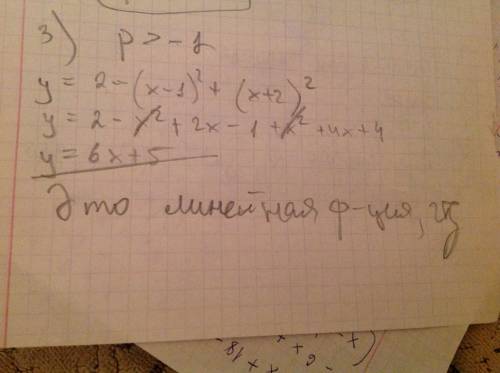 3) p > -1
y = 2 - (x-1)² + (x+2)²
y = 2 - x² + 2x - 1 + x² + 4x + 4
y = 6x + 5
Это линейная ф-ция, чтд